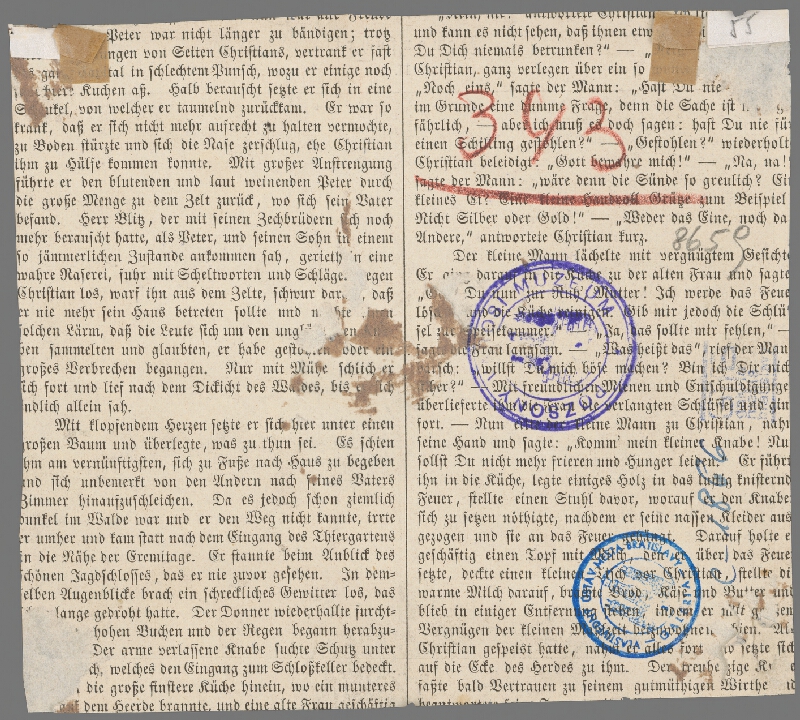 Peter war nicht länger zu bändigen; trotz
ngen von Seiten Christians, vertrank er fast
tal in schlechtem Punsch, wozu er einige noch
Kuchen aß. Halb berauscht setzte er sich in eine
ukel, von welcher er taumelnd zurückkam. Er war so
krank, daß er sich nicht mehr aufrecht zu halten vermochte,
zu Boden stürzte und sich die Nase zerschlug, ehe Christian
ihm zu Hülfe kommen konnte. Mit großer Anstrengung
führte er den blutenden und laut weinenden Peter durch
die große Menge zu dem Zelt zurück, wo sich sein Vater
befand. Herr Blitz, der mit seinen Zechbrüdern sich noch
mehr berauscht hatte, als Peter, und seinen Sohn in einem
so jämmerlichen Zustande ankommen sah, gerieth in eine
wahre Raserei, fuhr mit Scheltworten und Schläge. egen
Christian los, warf ihn aus dem Zelte, schwur dar daß
er nie mehr sein Haus betreten sollte und m te
solchen Lärm, daß die Leute sich um den
ben sammelten und glaubten, er habe oder ein
großes Verbrechen begangen. Nur mit Mühe schlich er
sich fort und lief nach dem Dickicht des Waldes, bis er sich
endlich allein sah.
Mit klopfendem Herzen setzte er sich hier unter einen
großen Baum und überlegte, was zu thun sei. Es schien
ihm am vernünftigsten, sich zu Fuße nach Haus zu begeben
und sich unbemerkt von den Andern nach seines Vaters
Zimmer hinaufzuschleichen. Da es jedoch schon ziemlich
dunkel im Walde war und er den Weg nicht kannte, irrte
er umher und kam statt nach dem Eingang des Thiergartens
in die Nähe der Eremitage. Er stannte beim Anblick des
schönen Jagdschlosses, das er nie zuvor gesehen. In dem-
selben Augenblicke brach ein schreckliches Gewitter los, das
lange gedroht hatte. Der Donner wiederhallte furcht-
hohen Buchen und der Regen begann herabzu-
Der arme verlassene Knabe suchte Schutz unter
ch, welches den Eingang zum Schloßkeller bedeckt.
die große finstere Küche hinein, wo ein munteres
dem Heerde brannte, und eine alte Frau geschäftig
55
antwortete Christian
und kann es nicht sehen, daß ihnen etwas
Du Dich niemals betrunken?" —
Christian, ganz verlegen über ein so
„Noch eins," sagte der Mann: „Hast Du nie
im Grunde eine dumme Frage, denn die Sache ist
fährlich, — aber ich muß es doch sagen: hast Du nie für
einen Schilling gestohlen?" — „Gestohlen?" wiederholt
Christian beleidigt: „Gott bewahre mich!" — „Na, na!
sagte der Mann: „wäre denn die Sünde so greulich? Ein
kleines Ei? Eine kleine Handvoll Grütze zum Beispiel
Nicht Silber oder Gold!" — „Weder das Eine, noch da
Andere," antwortete Christian kurz.
393
8659
Der kleine Mann lächelte mit vergnügtem Gesichte
Er ging darauf in die Küche zu der alten Frau und sagte
Du nun zur Ruh, Mutter! Ich werde das Feue
und die Küche Gib mir jedoch die Schlüs-
sel zur Speisekammer. — „Ja, das sollte mir fehlen," —
sagte die Frau langsam. — „Was heißt das" rief der Man
barsch: „willst Du mich böse machen? Bin ich Dir nich
— Mit freundlichen Mienen und Entschuldigunge
überlieferte verlangten Schlüssel und gin
fort. — Nun nahm der kleine Mann zu Christian, nahm
seine Hand und sagte: „Komm' mein kleiner Knabe! Nu
sollst Du nicht mehr frieren und Hunger leiden. Er führ
ihn in die Küche, legte einiges Holz in das lustig knisternd
Feuer, stellte einen Stuhl davor, worauf er den Knabe
sich zu setzen nöthigte, nachdem er seine nassen Kleider aus
gezogen und sie an das Feuer gehängt. Darauf holte e
geschäftig einen Topf mit Milch, den er über das Feue
setzte, deckte einen kleinen Tisch vor Christian, stellte di
warme Milch darauf, brachte Brod, Käse und Butter und
blieb in einiger Entfernung stehen, indem er mit
Vergnügen der kleinen Mahlzeit beizuwohnen schien. Al
Christian gespeist hatte, nahm er alles fort, so setzte sich
auf die Ecke des Herdes zu ihm. Der treuherzige
faßte bald Vertrauen zu seinem gutmüthigen Wirthe
MUZEUM
POZSONY